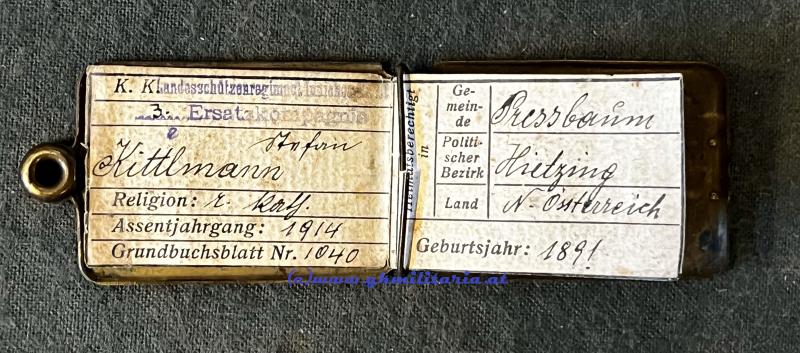 K. K. Landesschützenregiment
3. Ersatzkompagnie
Stefan
Kittlmann
Religion: r. kath.
Assentjahrgang: 1914
Grundbuchsblatt Nr. 1040
Heimatsberechtigt in
Gemeinde Pressbaum
Politischer Bezirk Hietzing
Land N-Österreich
Geburtsjahr: 1891
(c)www.ghmilitaria.at